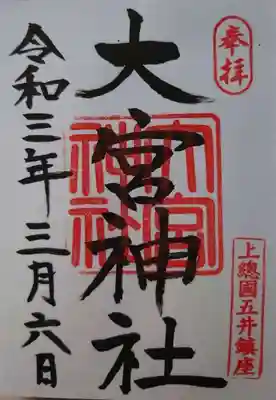 奉拝
上總國五井鎮座
大宮神社
大宮
神社
令和三年三月六日